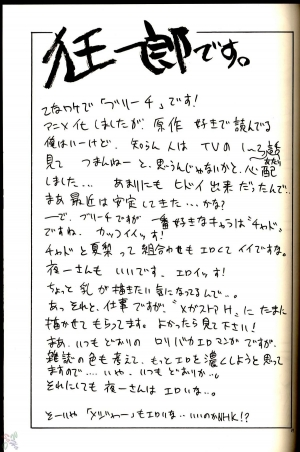 狂一郎です。
てなワケで「ブリーチ」です!
アニメ化しましたが、原作 好きで読んでる
俺はいーけど、知らん人は TVの 1〜3話
見て つまんねーと、思うんじゃないかと、心配
しました... あまりにも ヒドイ 出来 だったんで...
まあ 最近は 安定してきた...かな?
一で、ブリーチですが 一番好きなキャラは"チャド"
ですね、カッコイイッす!
チャドと夏梨 って 組合わせも エロくて イイですな。
夜一さんも いいです、エロイッす!
ちょっと 乳が描きたい 気になってるんで..。
あっ それと、仕事ですが、"XガストアH"に たまに
描かせて もらってます。よかったら見て下さい!
まあ、いつも どおりの ロリバカエロマンガ ですが、
雑誌の色も考えて、もっとエロを 濃くしようと思って
ますので....いや、いつもどおりか..。
それにしても 夜一さんは エロいな..。
そーいや 「メジャー」も エロいな.. いいのかNHK!?